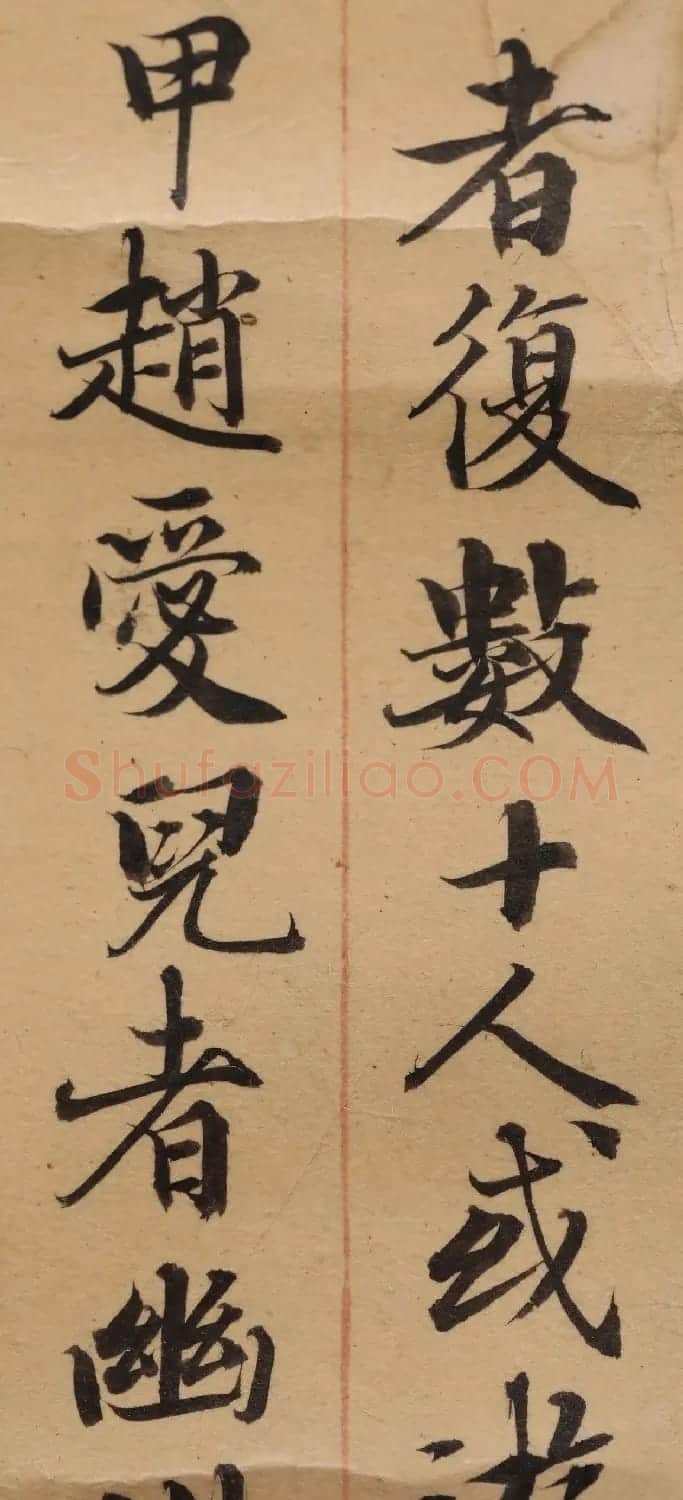 者復數十人或游
甲趙愛兒者幽
Shufaziliao.COM